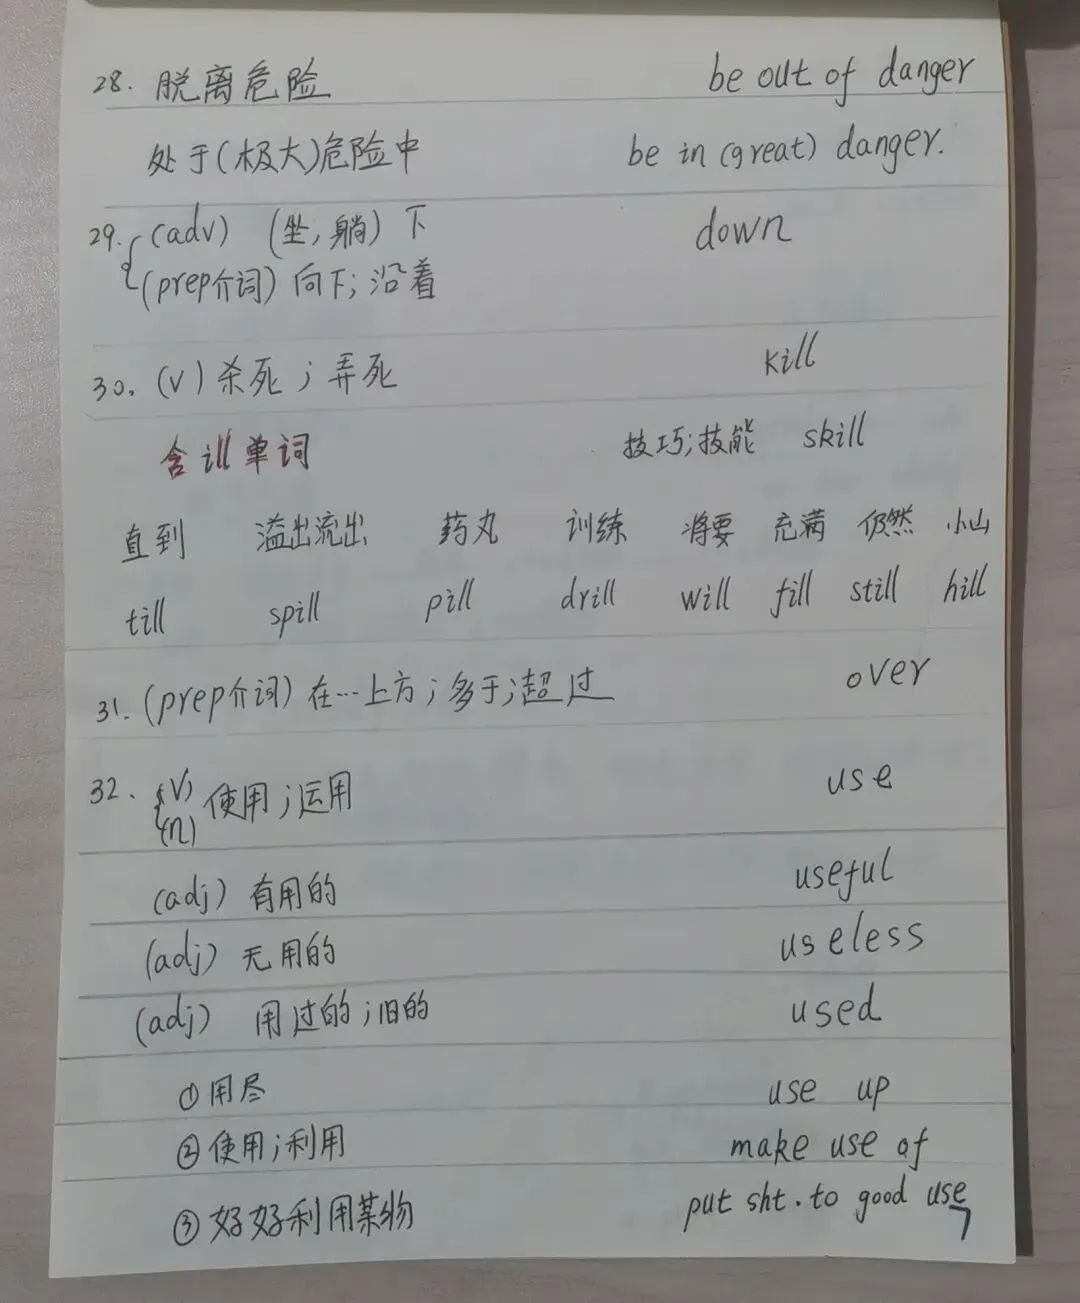 28. 脱离危险 be out of danger
处于(极大)危险中 be in (great) danger.
29. (adv) (坐,躺) 下 down
(prep介词) 向下; 沿着
30. (v) 杀死; 弄死 kill
含ill单词 技巧;技能 skill
直到 溢出流出 药丸 训练 将要 充满 仍然 小山
till spill pill drill will fill still hill
31. (prep介词) 在…上方; 多于; 超过 over
32. (v) (n) 使用; 运用 use
(adj) 有用的 useful
(adj) 无用的 useless
(adj) 用过的; 旧的 used
① 用尽 use up
② 使用; 利用 make use of
③ 好好利用某物 put sht. to good use
7